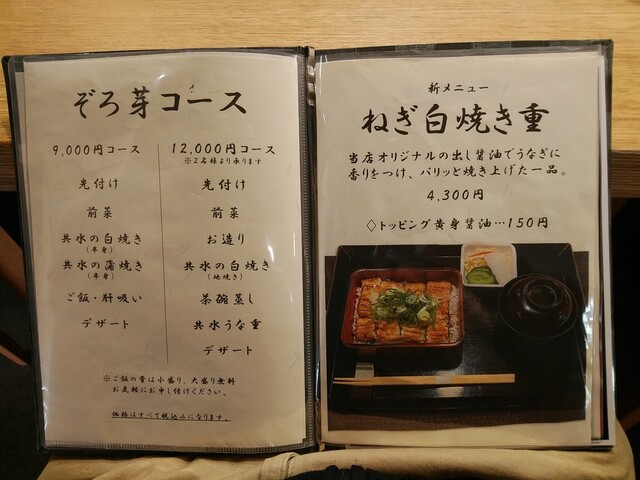 ぞろ芽コース
9,000円コース
先付け
前菜
共水の白焼き
(半身)
共水の蒲焼き
(半身)
ご飯・肝吸い
デザート
12,000円コース
※2名様より承ります
先付け
前菜
お造り
共水の白焼き
(地焼き)
茶碗蒸し
共水うな重
デザート
※ご飯の量は小盛り、大盛り無料
お気軽にお申し付けください。
価格はすべて税込みになります。
新メニュー
ねぎ白焼き重
当店オリジナルの出し醤油でうなぎに
香りをつけ、パリッと焼き上げた一品。
4,300円
◇トッピング黄身醤油…150円